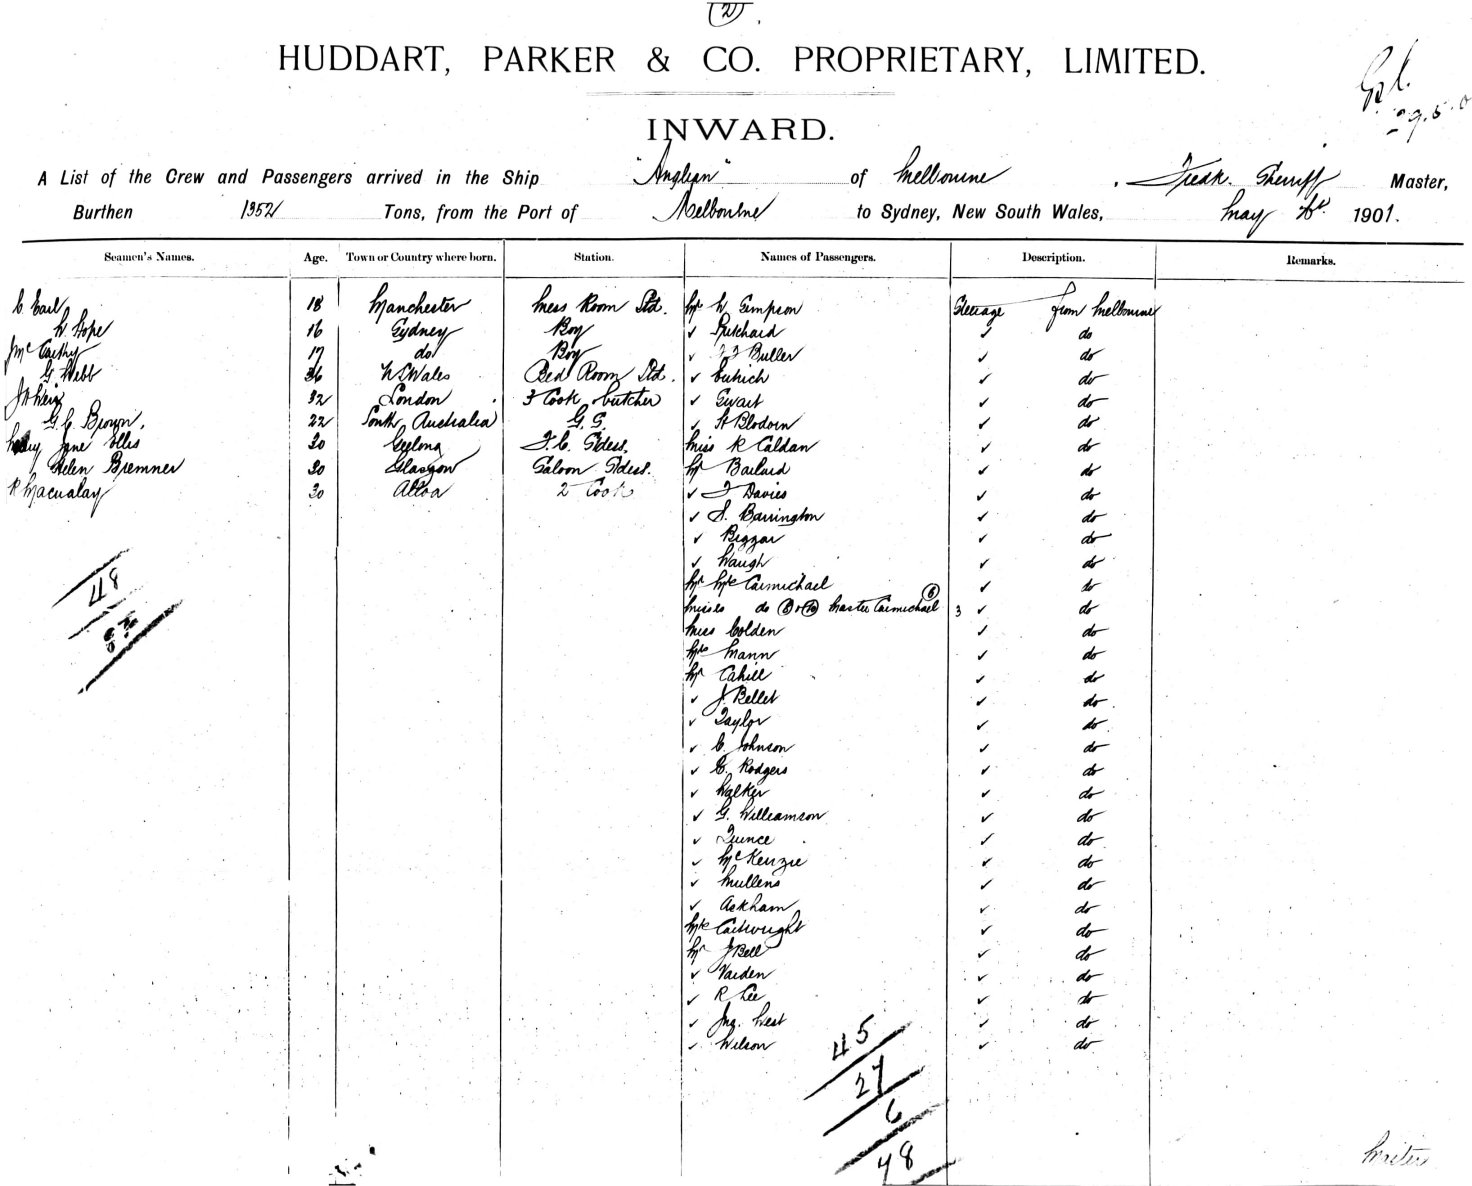 (2)
HUDDART, PARKER & CO. PROPRIETARY, LIMITED.
INWARD.
A List of the Crew and Passengers arrived in the Ship "Anglian" of Melbourne, Fredk. Sherriff Master,
Burthen 1352 Tons, from the Port of Melbourne to Sydney, New South Wales, May 1901.
Seamen's Names. Age. Town or Country where born. Station. Names of Passengers. Description. Remarks.
C Earl 18 Manchester Mess Room Std. Mr W Simpson Steerage from Melbourne
W Hope 16 Sydney Boy ✓ Pritchard ✓ do
J McCarthy 17 do Boy ✓ Buller ✓ do
G Webb 36 N S Wales Bed Room Std. ✓ ✓ do
32 London 3 Cook butcher ✓ Swart ✓ do
G C Brown. 22 South Australia G. S. ✓ St Blodorn ✓ do
Mary Jane Ellis 30 Geelong F. C. Stdess. Miss R Caldan ✓ do
Helen Bremner 30 Glasgow Saloon Stdess. Mr ✓ do
R Macualay 30 Alloa 2 Cook ✓ J Davies ✓ do
✓ S. Barrington ✓ do
✓ Beggar ✓ do
✓ Waugh ✓ do
Mr Mrs Carmichael ✓ do
Misses do (8) & (10) Master Carmichael (6) 3 ✓ do
Miss Colden ✓ do
Mrs Mann ✓ do
Mr Cahill ✓ do
✓ J. Bellet ✓ do
✓ Taylor ✓ do
✓ C. Johnson ✓ do
✓ C. Rodgers ✓ do
✓ Walker ✓ do
✓ G. Williamson ✓ do
✓ Quince ✓ do
✓ McKenzie ✓ do
✓ Mullens ✓ do
✓ Askham ✓ do
Mrs Cartwright ✓ do
Mr J Bell ✓ do
✓ Varden ✓ do
✓ R Lee ✓ do
✓ Jno. West ✓ do
✓ Wilson ✓ do
48
45
27
6
48